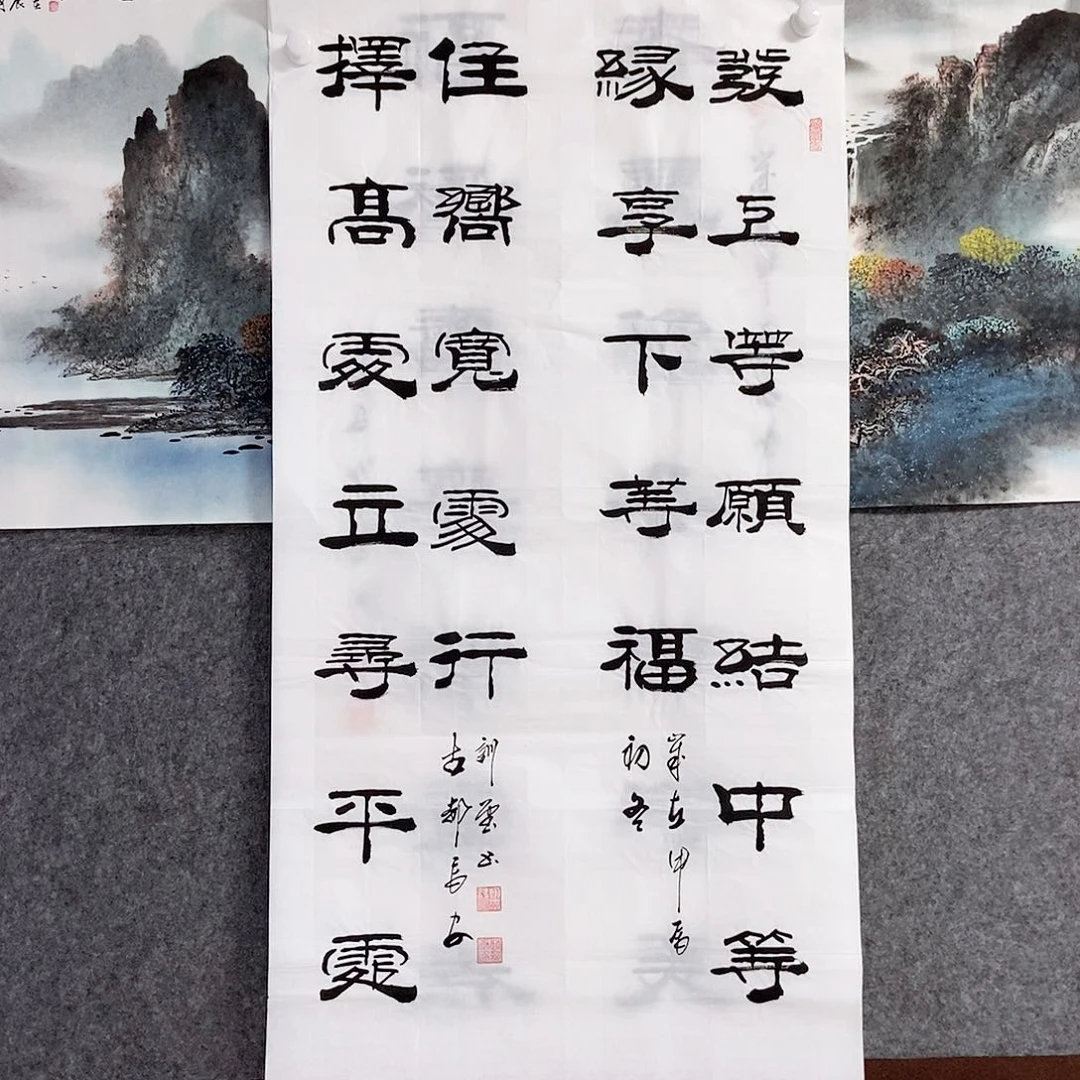 發上等願結中等
緣享下等福
歲在甲辰
初冬
擇高處立尋平處
住嚮寬處行
雲书
古都長安